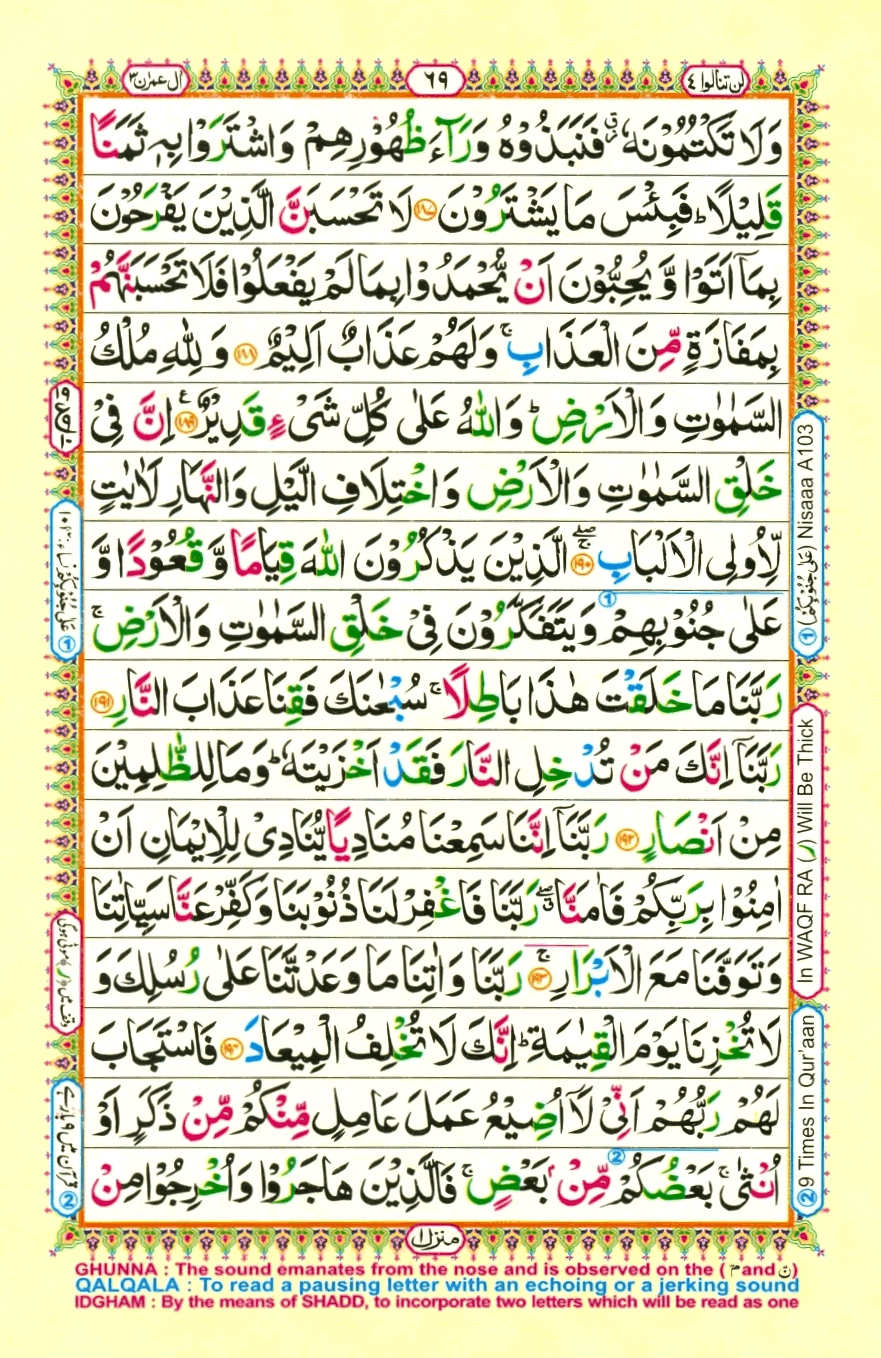 لن تنالوا ٤
٦٩
اٰل عمرٰن ٣
وَلَا تَكْتُمُوْنَهٗ ۫ فَنَبَذُوْهُ وَرَآءَ ظُهُوْرِهِمْ وَاشْتَرَوْا بِهٖ ثَمَنًا
قَلِيْلًا ؕ فَبِئْسَ مَا يَشْتَرُوْنَ ۝۱۸۷ لَا تَحْسَبَنَّ الَّذِيْنَ يَفْرَحُوْنَ
بِمَاۤ اَتَوْا وَّ يُحِبُّوْنَ اَنْ يُّحْمَدُوْا بِمَا لَمْ يَفْعَلُوْا فَلَا تَحْسَبَنَّهُمْ
بِمَفَازَةٍ مِّنَ الْعَذَابِ ۚ وَلَهُمْ عَذَابٌ اَلِيْمٌ ۝۱۸۸ وَلِلّٰهِ مُلْكُ
السَّمٰوٰتِ وَالْاَرْضِ ؕ وَاللّٰهُ عَلٰى كُلِّ شَیْءٍ قَدِيْرٌ ۝۱۸۹ اِنَّ فِیْ
خَلْقِ السَّمٰوٰتِ وَالْاَرْضِ وَاخْتِلَافِ الَّيْلِ وَالنَّهَارِ لَاٰيٰتٍ
لِّاُولِی الْاَلْبَابِ ۝۱۹۰ الَّذِيْنَ يَذْكُرُوْنَ اللّٰهَ قِيَامًا وَّ قُعُوْدًا وَّ
عَلٰى جُنُوْبِهِمْ وَيَتَفَكَّرُوْنَ فِیْ خَلْقِ السَّمٰوٰتِ وَالْاَرْضِ ۚ
رَبَّنَا مَا خَلَقْتَ هٰذَا بَاطِلًا ۚ سُبْحٰنَكَ فَقِنَا عَذَابَ النَّارِ ۝۱۹۱
رَبَّنَاۤ اِنَّكَ مَنْ تُدْخِلِ النَّارَ فَقَدْ اَخْزَيْتَهٗ ؕ وَمَا لِلظّٰلِمِيْنَ
مِنْ اَنْصَارٍ ۝۱۹۲ رَبَّنَاۤ اِنَّنَا سَمِعْنَا مُنَادِيًا يُّنَادِیْ لِلْاِيْمَانِ اَنْ
اٰمِنُوْا بِرَبِّكُمْ فَاٰمَنَّا ۖ رَبَّنَا فَاغْفِرْ لَنَا ذُنُوْبَنَا وَكَفِّرْ عَنَّا سَيِّاٰتِنَا
وَتَوَفَّنَا مَعَ الْاَبْرَارِ ۝۱۹۳ رَبَّنَا وَاٰتِنَا مَا وَعَدْتَّنَا عَلٰى رُسُلِكَ وَ
لَا تُخْزِنَا يَوْمَ الْقِيٰمَةِ ؕ اِنَّكَ لَا تُخْلِفُ الْمِيْعَادَ ۝۱۹۴ فَاسْتَجَابَ
لَهُمْ رَبُّهُمْ اَنِّیْ لَاۤ اُضِيْعُ عَمَلَ عَامِلٍ مِّنْكُمْ مِّنْ ذَكَرٍ اَوْ
اُنْثٰى ۚ بَعْضُكُمْ مِّنْۢ بَعْضٍ ۚ فَالَّذِيْنَ هَاجَرُوْا وَاُخْرِجُوْا مِنْ
① (عَلٰى جُنُوْبِكُمْ) Nisaaa A103
In WAQF RA (ر) Will Be Thick
② 9 Times In Qur'aan
وقف میں (ر) موٹی ہوگی
② قرآن میں ۹ بار ہے
منزل ۱
GHUNNA : The sound emanates from the nose and is observed on the ( مّ and نّ )
QALQALA : To read a pausing letter with an echoing or a jerking sound
IDGHAM : By the means of SHADD, to incorporate two letters which will be read as one